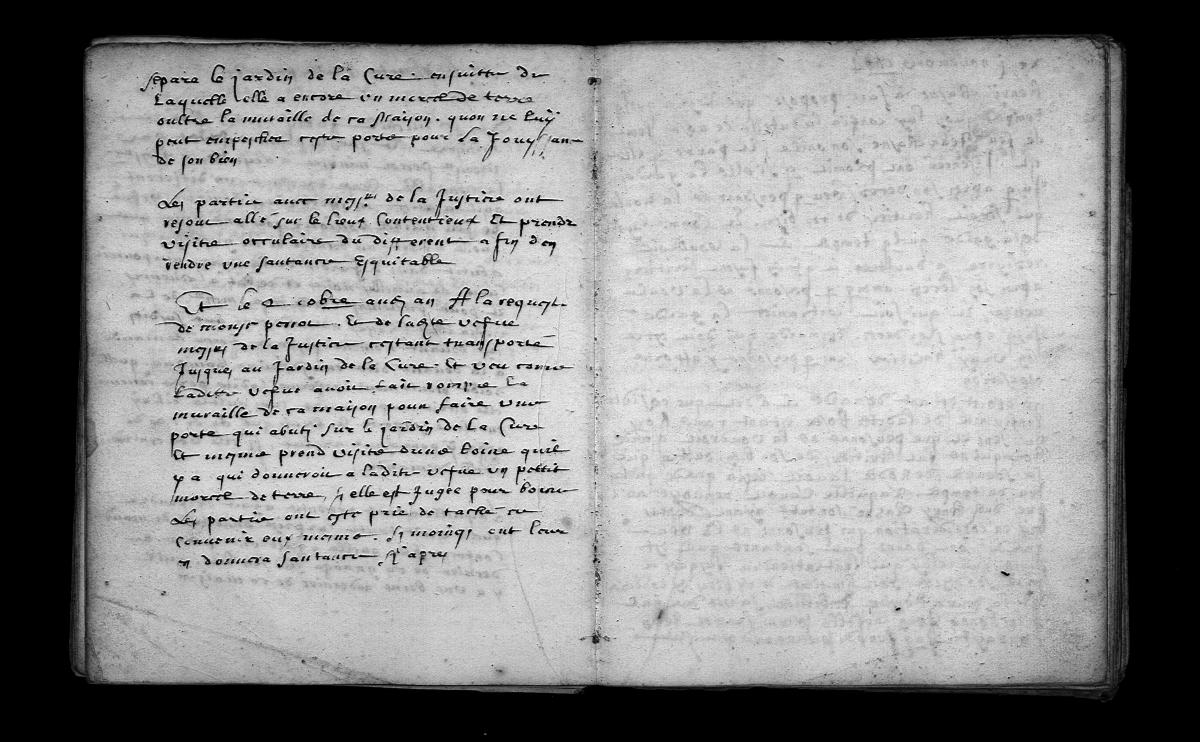 separe le jardin de la Cure ensuitte de
Laquelle elle a encore un morcel de terre
oultre la muraille de ca Maison. quon ne luij
peut empescher ceste porte pour La Jouyssance
de son bien
Les partie auec mess.rs de la Justice ont
resoui allé sur le lieux Contentieux Et prendre
visitte occulaire du different afin den
rendre une santance Esquitable
Et le 2 cobre audi an A la requeste
de mons.r perrot. Et de ladte vefue
mess.rs de la Justice cestant transporte
Jusques au Jardin de la Cure. Et veu comme
Ladite vefue auoit fait rompre La
muraille de ca maison pour faire une
porte qui abuti sur le jardin de La Cure
Et mesme prend visite dune boine quil
y a qui donneroit a ladite vefue un pettit
morcel de terre, sy elle est Jugee pour boine
Les partie ont este prie de tache ce
Convenir eux mesme. Sy moings ont leur
en donnera santance cy apres